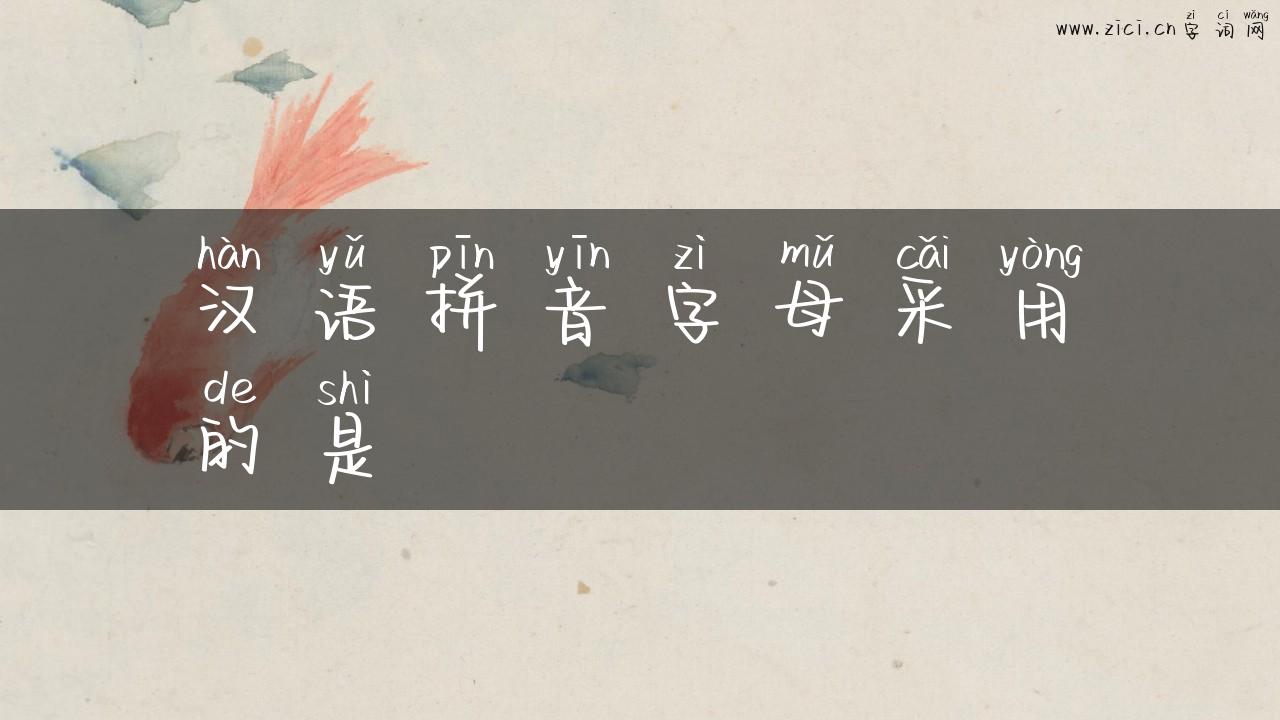 zì cí wǎng
www.zici.cn 字 词 网
hàn yǔ pīn yīn zì mǔ cǎi yòng
汉 语 拼 音 字 母 采 用
de shì
的 是